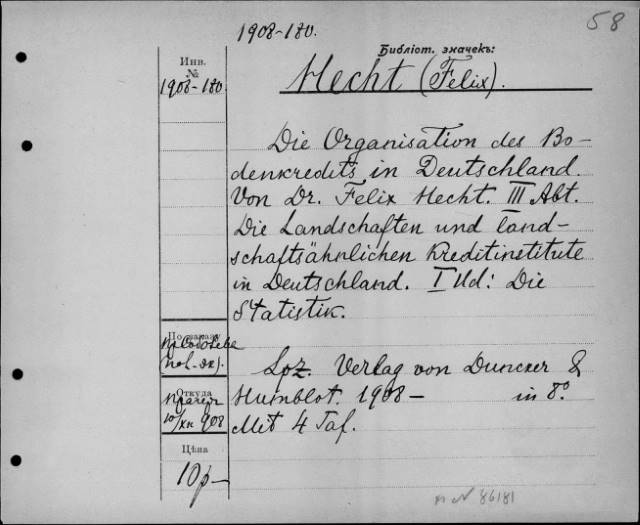 58
1908-180.
Библіот. значекъ:
Инв.
№
1908-180
Hecht (Felix).
Die Organisation des Bo-
denkredits in Deutschland.
Von Dr. Felix Hecht. III Abt.
Die Landschaften und land-
schaftsähnlichen Kreditinstitute
in Deutschland. I Bd: Die
Statistik.
По заказу
Lpz. Verlag von Duncker &
Humblot. 1908 — in 8°.
Mit 4 Taf.
Откуда
10/XII 908
Цѣна
10 р—
86181